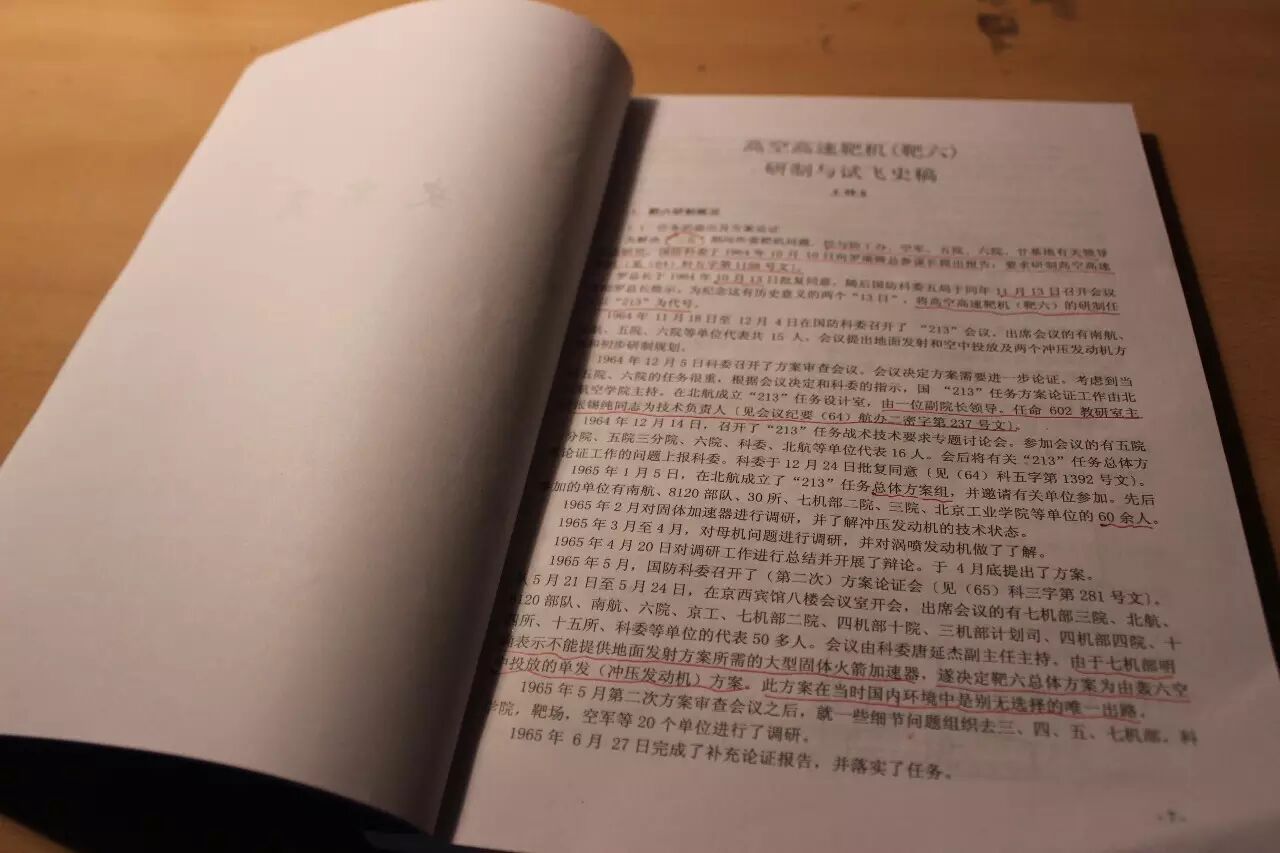 高空高速靶机(靶六)
研制与试飞史稿
靶六研制概况
任务的提出及方案论证
期间所需靶机问题,
国防科委于1964年10月10日向罗瑞卿总参谋长提出报告,要求研制高空高速
(64)科五字第1198号文〕。
罗总长于1964年10月13日批复同意。随后国防科委五局于同年11月13日召开会议
罗总长指示,为纪念这有历史意义的两个“13日”,将高空高速靶机(靶六)的研制任
“213”为代号。
1964年11月18日至12月4日在国防科委召开了“213”会议。出席会议的有南航、
五院、六院等单位代表共15人。会议提出地面发射和空中投放及两个冲压发动机方
和初步研制规划。
1964年12月5日科委召开了方案审查会议。会议决定方案需要进一步论证。考虑到当
五院、六院的任务很重,根据会议决定和科委的指示,国“213”任务方案论证工作由北
航空学院主持。在北航成立“213”任务设计室,由一位副院长领导。任命602教研室主
张锡纯同志为技术负责人〔见会议纪要(64)航办二密字第237号文〕。
1964年12月14日,召开了“213”任务战术技术要求专题讨论会。参加会议的有五院
分院、五院三分院、六院、科委、北航等单位代表16人。会后将有关“213”任务总体方
论证工作的问题上报科委。科委于12月24日批复同意〔见(64)科五字第1392号文〕。
1965年1月5日,在北航成立了“213”任务总体方案组,并邀请有关单位参加。先后
加的单位有南航、8120部队、30所、七机部二院、三院、北京工业学院等单位的60余人。
1965年2月对固体加速器进行调研,并了解冲压发动机的技术状态。
1965年3月至4月,对母机问题进行调研,并对涡喷发动机做了了解。
1965年4月20日对调研工作进行总结并开展了辩论。于4月底提出了方案。
1965年5月,国防科委召开了(第二次)方案论证会〔见(65)科三字第281号文〕。
从5月21日至5月24日,在京西宾馆八楼会议室开会,出席会议的有七机部三院、北航、
8120部队、南航、六院、京工、七机部二院、四机部十院、三机部计划司、四机部四院、十
四所、十五所、科委等单位的代表50多人。会议由科委唐延杰副主任主持。由于七机部明
确表示不能提供地面发射方案所需的大型固体火箭加速器,遂决定靶六总体方案为由轰六空
中投放的单发(冲压发动机)方案。此方案在当时国内环境中是别无选择的唯一出路。
1965年5月第二次方案审查会议之后,就一些细节问题组织去三、四、五、七机部,科
学院,靶场,空军等20个单位进行了调研。
1965年6月27日完成了补充论证报告,并落实了任务。